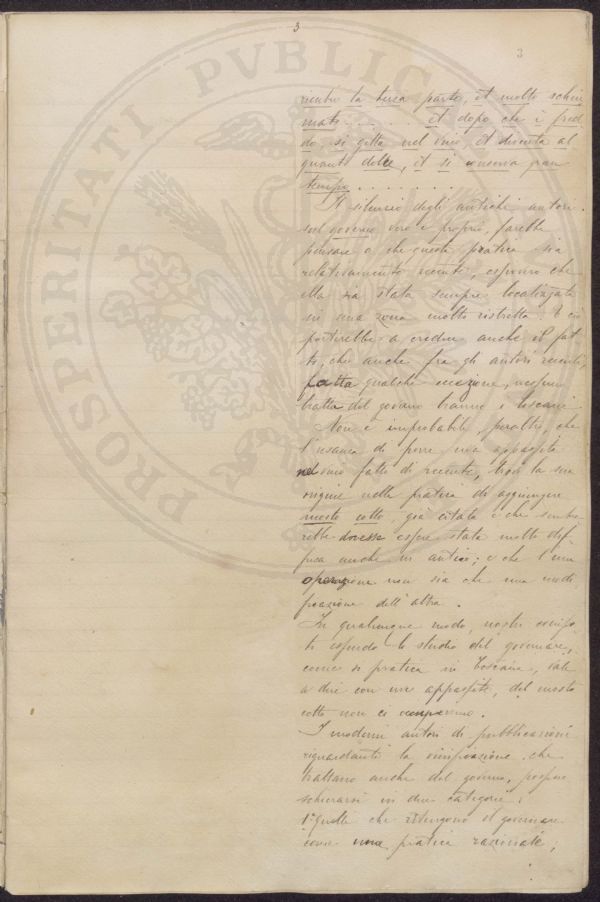 3
3
rientro la terza parte, et molto schiu
mato . . . . et dopo che è fred
do, si getta nel vino, et diventa al
quanto dolce, et si conserva gran
tempo . . . . . . . . .
Il silenzio degli antichi autori
sul governo vero e proprio, farebbe
pensare o che questa pratica sia
relativamente recente, oppure che
ella sia stata sempre localizzata
in una zona molto ristretta. E ciò
porterebbe a credere anche il fat
to, che anche fra gli autori recenti,
fatta qualche eccezione, nessun
tratta del governo tranne i toscani.
Non è improbabile, peraltro, che
l'usanza di porre uva appassita
nel vino fatto di recente, tragga la sua
origine nella pratica di aggiungere
mosto cotto, già citata e che sembre
rebbe dovesse essere stata molto dif
fusa anche in antico; e che l'una
operazione non sia che una modi
ficazione dell'altra.
In qualunque modo, nostro compi
to essendo lo studio del governare,
come si pratica in Toscana, vale
a dire con uve appassite, del mosto
cotto non ci occuperemo.
I moderni autori di pubblicazioni
riguardanti la vinificazione che
trattano anche del governo, possono
schierarsi in due categorie:
1° Quelli che ritengono il governare
come una pratica razionale;
PROSPERITATI PVBLICAE